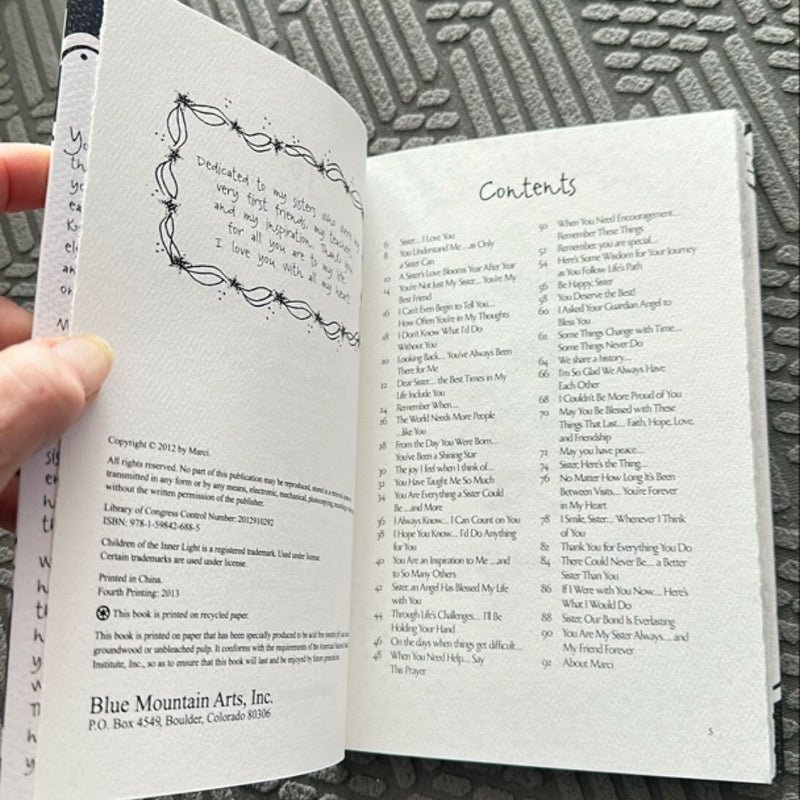 Dedicated to my sisters who were my
very first friends, my teachers,
and my inspiration. Thank you
for all you are to my life.
I love you with all my heart.
Copyright © 2012 by Marci.
All rights reserved. No part of this publication may be reproduced, stored in a retrieval system,
transmitted in any form or by any means, electronic, mechanical, photocopying, recording or
without the written permission of the publisher.
Library of Congress Control Number: 2012910292
ISBN: 978-1-59842-688-5
Children of the Inner Light is a registered trademark. Used under license.
Certain trademarks are used under license.
Printed in China.
Fourth Printing: 2013
This book is printed on recycled paper.
This book is printed on paper that has been specially produced to be acid free
groundwood or unbleached pulp. It conforms with the requirements of the American
Institute, Inc., so as to ensure that this book will last and be enjoyed by future generations.
Blue Mountain Arts, Inc.
P.O. Box 4549, Boulder, Colorado 80306
Contents
6 Sister... I Love You
8 You Understand Me ...as Only
a Sister Can
10 A Sister's Love Blooms Year After Year
14 You're Not Just My Sister... You're My
Best Friend
16 I Can't Even Begin to Tell You...
How Often You're in My Thoughts
18 I Don't Know What I'd Do
Without You
20 Looking Back... You've Always Been
There for Me
22 Dear Sister... the Best Times in My
Life Include You
24 Remember When...
26 The World Needs More People
...like You
28 From the Day You Were Born...
You've Been a Shining Star
30 The joy I feel when I think of...
32 You Have Taught Me So Much
34 You Are Everything a Sister Could
Be ...and More
36 I Always Know... I Can Count on You
38 I Hope You Know... I'd Do Anything
for You
40 You Are an Inspiration to Me ...and
to So Many Others
42 Sister, an Angel Has Blessed My Life
with You
44 Through Life's Challenges... I'll Be
Holding Your Hand
46 On the days when things get difficult...
48 When You Need Help... Say
This Prayer
50 When You Need Encouragement...
Remember These Things
52 Remember, you are special...
54 Here's Some Wisdom for Your Journey
as You Follow Life's Path
56 Be Happy, Sister
58 You Deserve the Best!
60 I Asked Your Guardian Angel to
Bless You
62 Some Things Change with Time...
Some Things Never Do
64 We share a history...
66 I'm So Glad We Always Have
Each Other
68 I Couldn't Be More Proud of You
70 May You Be Blessed with These
Things That Last... Faith, Hope, Love,
and Friendship
72 May you have peace...
74 Sister, Here's the Thing...
76 No Matter How Long It's Been
Between Visits... You're Forever
in My Heart
78 I Smile, Sister... Whenever I Think
of You
82 Thank You for Everything You Do
84 There Could Never Be... a Better
Sister Than You
86 If I Were with You Now... Here's
What I Would Do
88 Sister, Our Bond Is Everlasting
90 You Are My Sister Always... and
My Friend Forever
92 About Marci
5